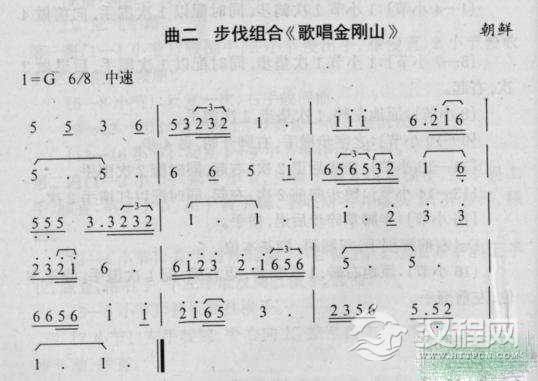 曲二 步伐组合《歌唱金刚山》 朝鲜
1=G 6/8 中速
5 5 3 6 | 5 3 2 3 2 1 . | i i i 6 . 2 i 6 |
5 . 5 | 6 6 5 i | 6 5 6 5 3 2 1 6 |
5 5 5 3 . 3 2 3 2 | 1 . 1 . | 1 2 3 3 |
2 3 2 i 6 | 6 i 2 3 2 . i 6 5 6 | 5 5 . |
6 6 5 6 i i | 2 i 6 5 3 . | 2 3 5 6 5 . 5 2 |
1 . 1 . ‖
汉程网
HTTPCN.COM